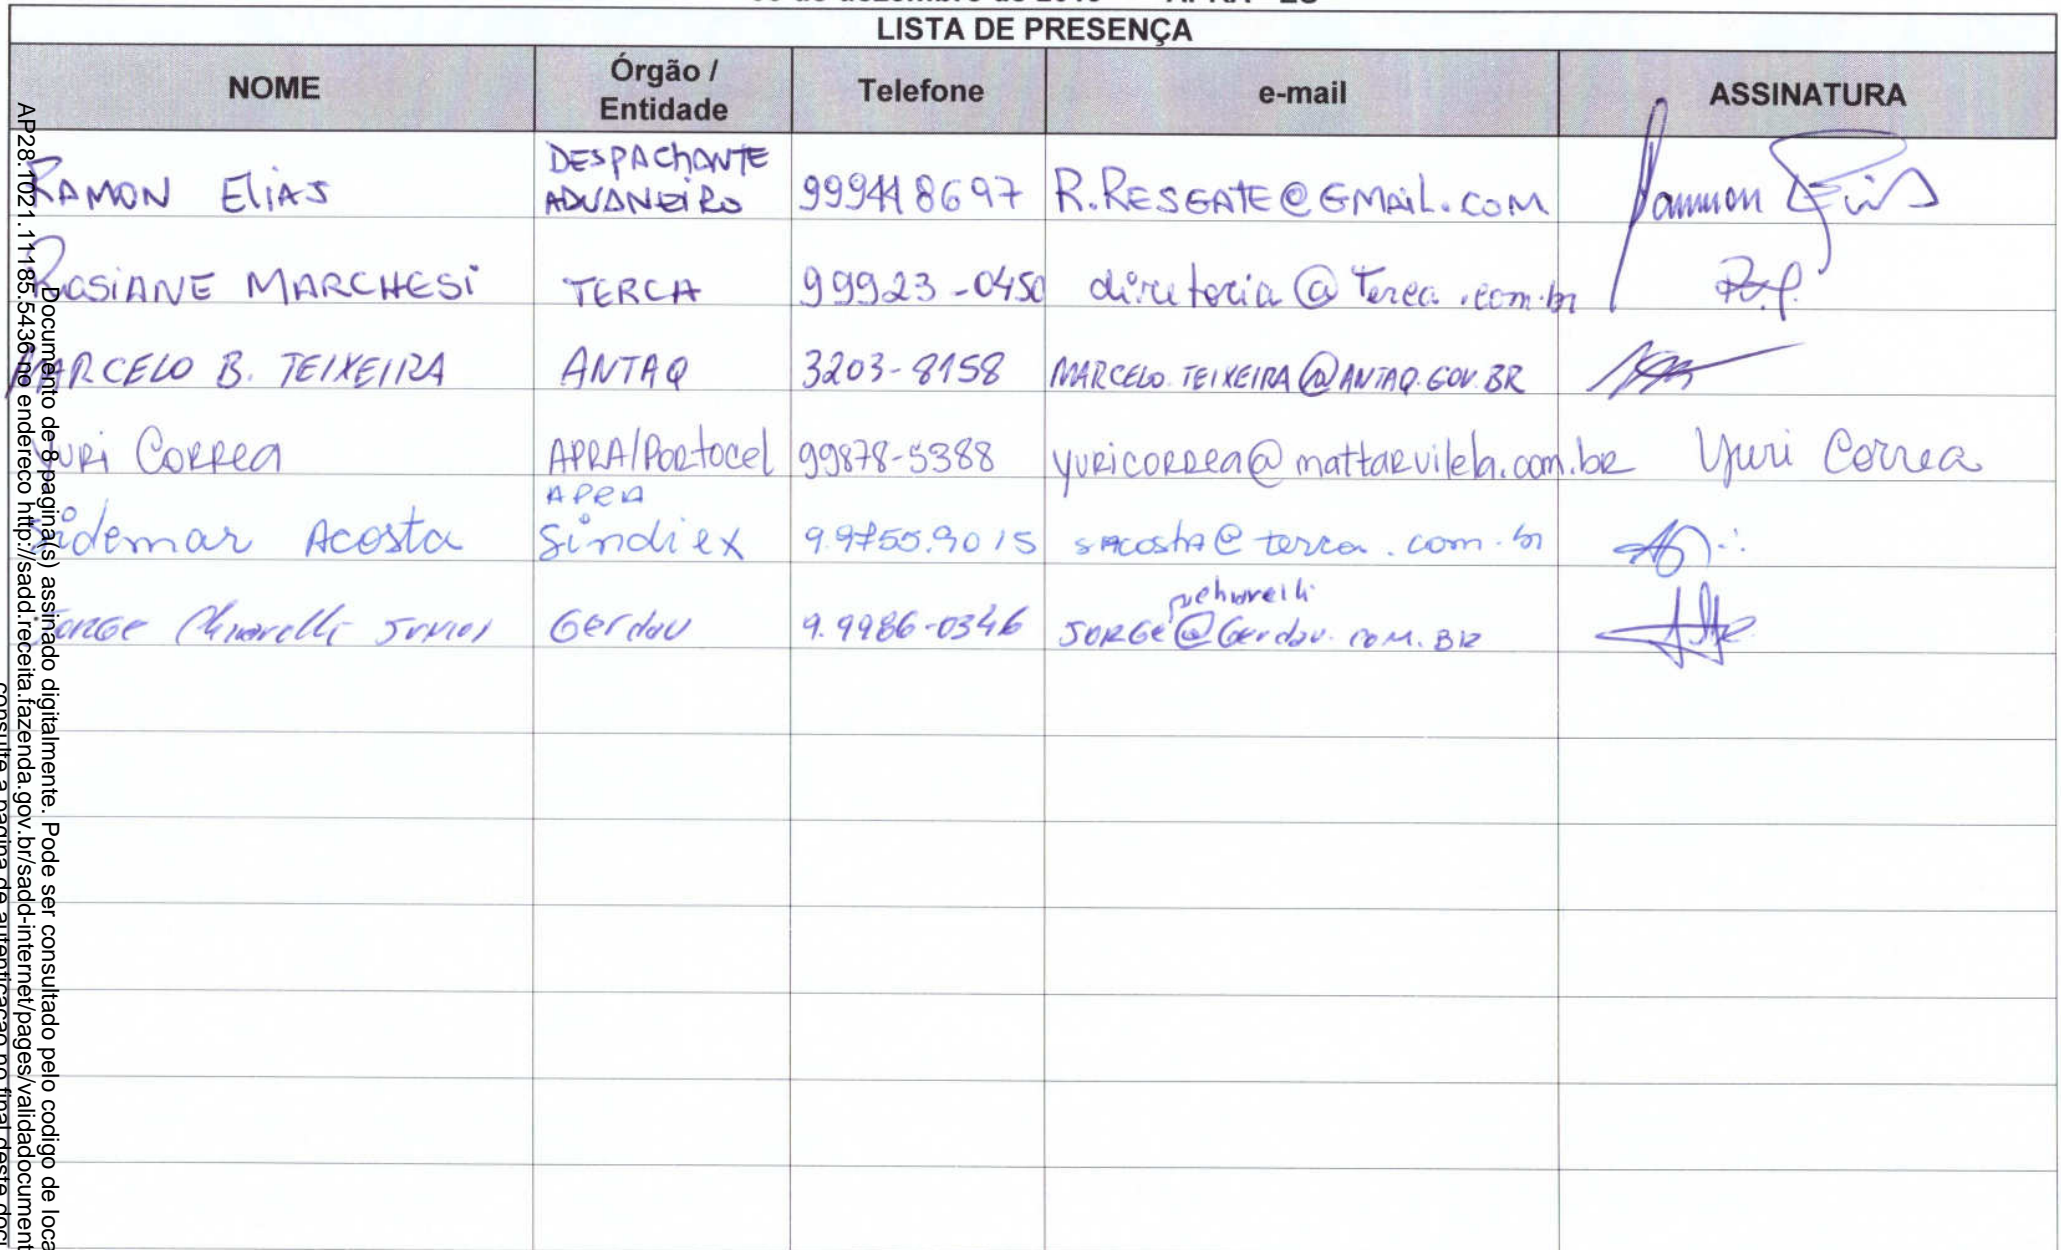 LISTA DE PRESENÇA
NOME Órgão / Entidade Telefone e-mail ASSINATURA
RAMON ELIAS DESPACHANTE ADUANEIRO 999418697 R.RESGATE@GMAIL.COM
ROSIANE MARCHESI TERCA 99923-0450 diretoria@terca.com.br
MARCELO B. TEIXEIRA ANTAQ 3203-8158 MARCELO.TEIXEIRA@ANTAQ.GOV.BR
YURI CORREA APRA/PORTOCEL 99878-5388 yuricorrea@mattarvilela.com.br Yuri Correa
Sidemar Acosta APRA Sindiex 9.9755.9015 sacosta@terra.com.br
JORGE Chiarelli JUNIOR Gerdau 9.9986-0346 JORGE @Gerdau.COM.BR
Documento de 8 pagina(s) assinado digitalmente. Pode ser consultado pelo codigo de loca
AP28.1021.11185.5436 no endereco http://sadd.receita.fazenda.gov.br/sadd-internet/pages/validadocument
consulte a pagina de autenticacao no final deste doc